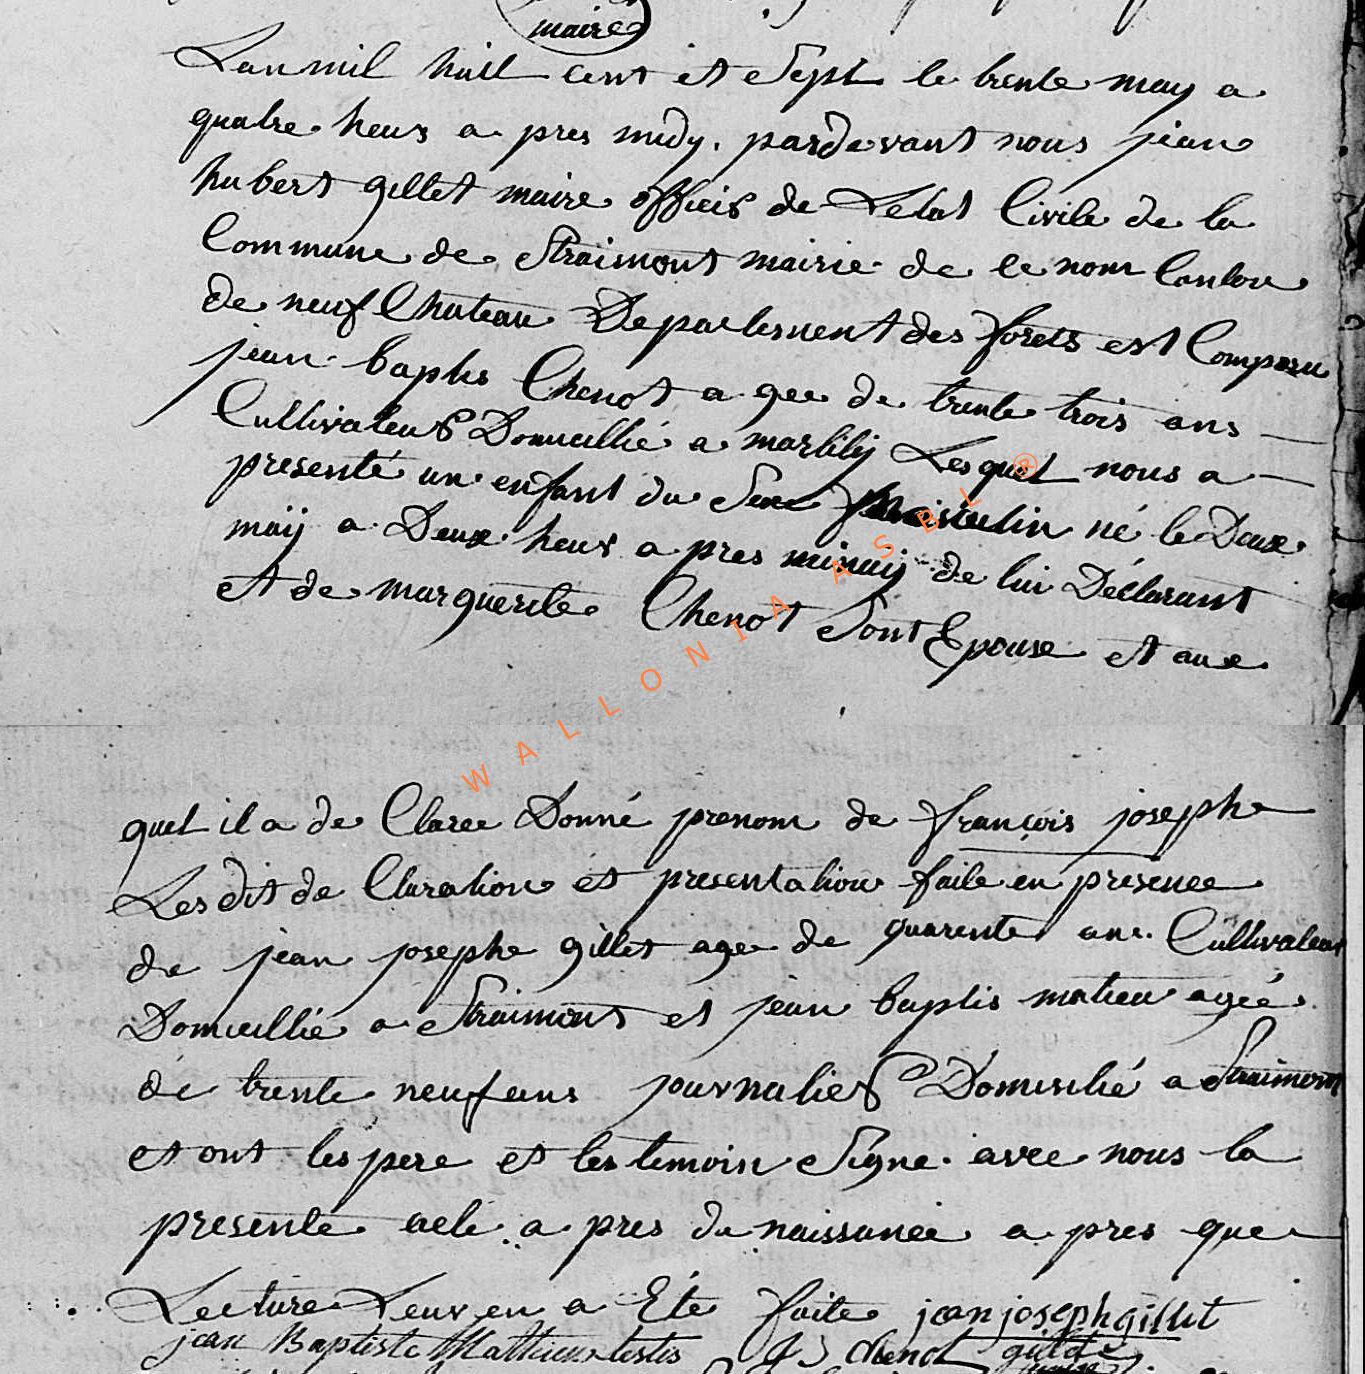 maire
Lan mil huit cent et Sept le trente may a
quatre heur a pres midy. pardevant nous jean
hubert gillet maire officir de Letat Civile de la
Commune de Straimont mairie de ce nom Canton
de neuf Chateau Departement des forets est Comparu
jean baptis Chenot a gee de trente trois ans
Cultivateur Domicillié a martilly Lesquel nous a
presenté un enfant du Sexe masculin né le Deux
maÿ a Deux heur a pres minuy de lui Déclarant
et de marguerite Chenot Sont Epouse et aux
quel il a de Claree Donné prenom de françois josephe
Les dit de Claration et presentation faite en presence
de jean josephe gillet age de quarente ans Cultivateur
Domicillié a Straimont et jean baptis matieu ageé
de trente neuf ans journalier Domicilié a Straimont
et ont les pere et les temoin Signe avec nous la
presente acte a pres du naissance a pres que
Lecture Leur en a Eté faite jean joseph gillet
jean Baptiste Matthieu testis J J chenot gillet
maire
WALLONIA ASBL ®